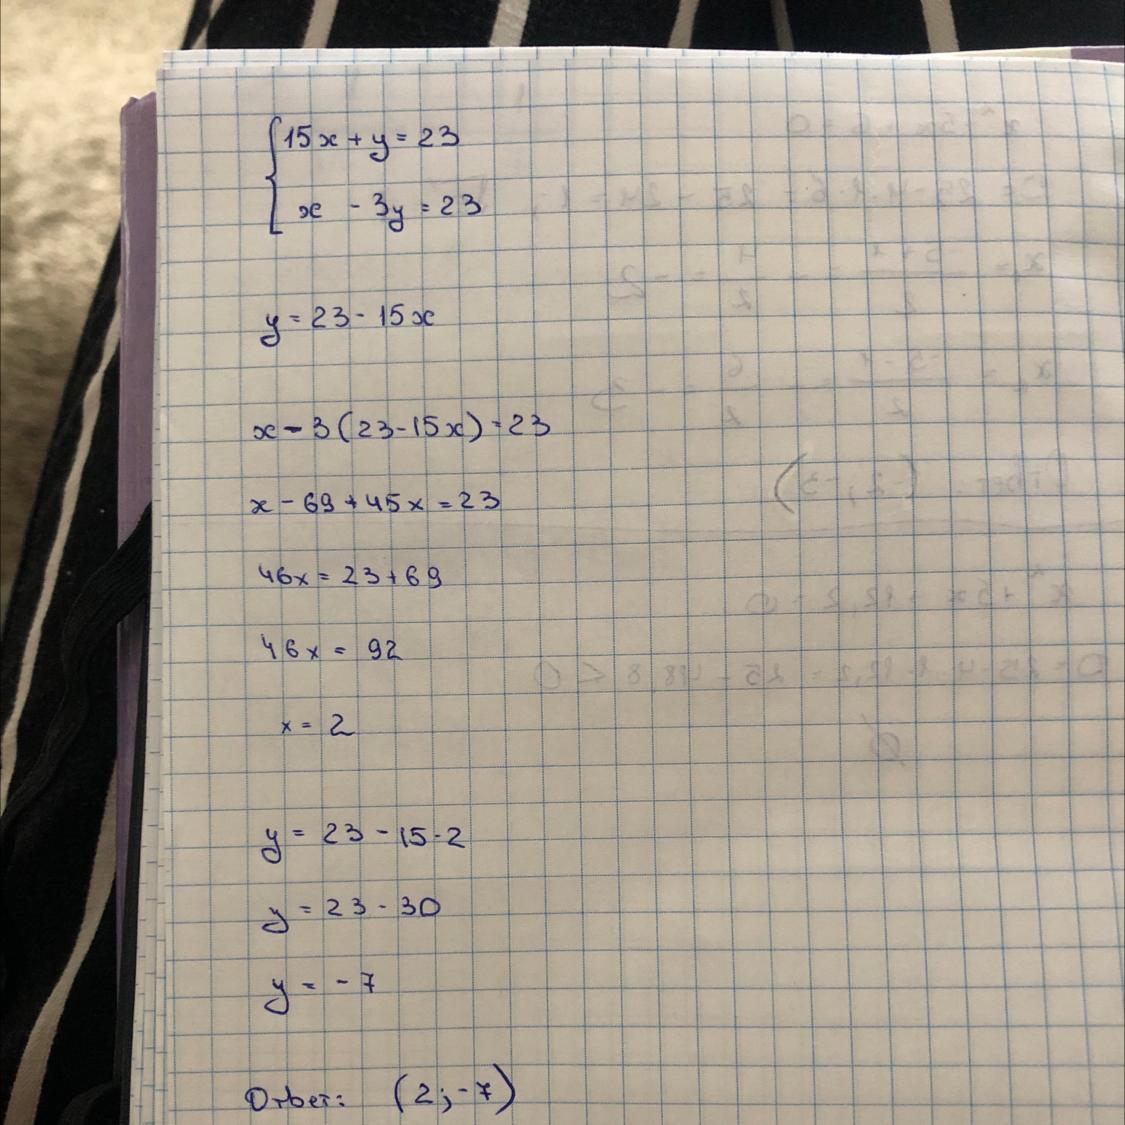 15x + y = 23
x - 3y = 23
y = 23 - 15x
x - 3(23-15x) = 23
x - 69 + 45x = 23
46x = 23 + 69
46x = 92
x = 2
y = 23 - 15·2
y = 23 - 30
y = - 7
Ответ: (2; -7)